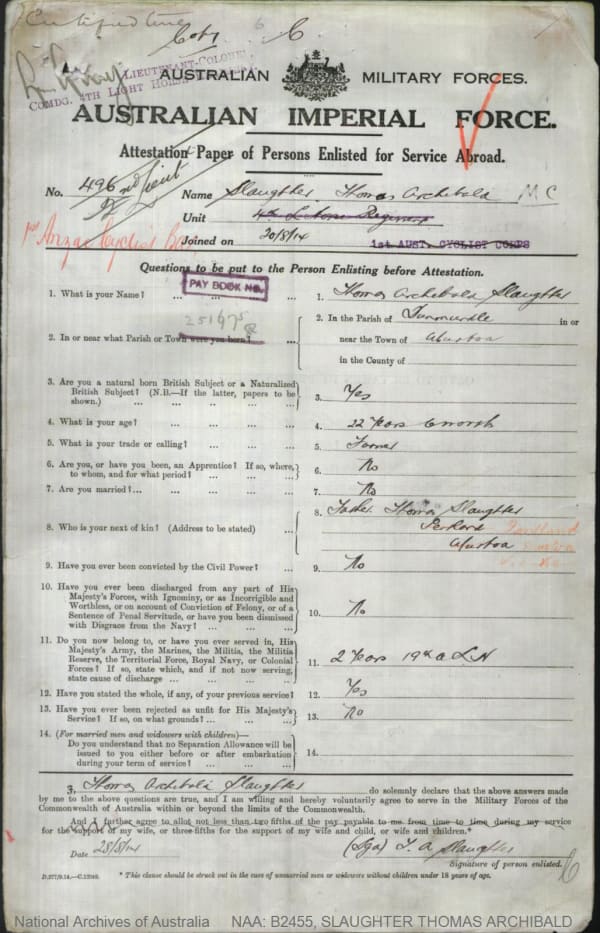 Certified true
LIEUTENANT-COLONEL
COMDG. 4TH LIGHT HORSE
AUSTRALIAN MILITARY FORCES.
AUSTRALIAN IMPERIAL FORCE.
Attestation Paper of Persons Enlisted for Service Abroad.
No. 496 Name Slaughter Thomas Archibald M C
2nd Lieut
Unit 4th L. Horse Regiment
1st Anzac Cyclist Bn.
Joined on 20/8/14 1st AUST. CYCLIST CORPS
Questions to be put to the Person Enlisting before Attestation.
PAY BOOK NO.
1. What is your Name? ... ... ... ... 1. Thomas Archibald Slaughter
2. In or near what Parish or Town were you born? ... 2. In the Parish of in or
near the Town of
in the County of
3. Are you a natural born British Subject or a Naturalized British Subject? (N.B.—If the latter, papers to be shown.) ... 3. Yes
4. What is your age? ... ... ... ... 4. 22 Years 6 month
5. What is your trade or calling? ... ... ... 5. Farmer
6. Are you, or have you been, an Apprentice? If so, where, to whom, and for what period? ... 6. No
7. Are you married? ... ... ... ... 7. No
8. Who is your next of kin? (Address to be stated) ... 8. Father Thomas Slaughter
9. Have you ever been convicted by the Civil Power? ... 9. No
10. Have you ever been discharged from any part of His Majesty's Forces, with Ignominy, or as Incorrigible and Worthless, or on account of Conviction of Felony, or of a Sentence of Penal Servitude, or have you been dismissed with Disgrace from the Navy? ... 10. No
11. Do you now belong to, or have you ever served in, His Majesty's Army, the Marines, the Militia, the Militia Reserve, the Territorial Force, Royal Navy, or Colonial Forces? If so, state which, and if not now serving, state cause of discharge ... 11. 2 Years 19th A L H
12. Have you stated the whole, if any, of your previous service? 12. Yes
13. Have you ever been rejected as unfit for His Majesty's Service? If so, on what grounds? ... 13. No
14. (For married men and widowers with children)—
Do you understand that no Separation Allowance will be issued to you either before or after embarkation during your term of service? ... 14.
I, Thomas Archibald Slaughter do solemnly declare that the above answers made
by me to the above questions are true, and I am willing and hereby voluntarily agree to serve in the Military Forces of the
Commonwealth of Australia within or beyond the limits of the Commonwealth.
And I further agree to allot not less than two-fifths of the pay payable to me from time to time during my service
for the support of my wife, or three-fifths for the support of my wife and child, or wife and children.*
Date 28/8/14 (Sgd) T. A Slaughter
Signature of person enlisted.
D.277/9.14.—C.12040. * This clause should be struck out in the case of unmarried men or widowers without children under 18 years of age.
National Archives of Australia NAA: B2455, SLAUGHTER THOMAS ARCHIBALD